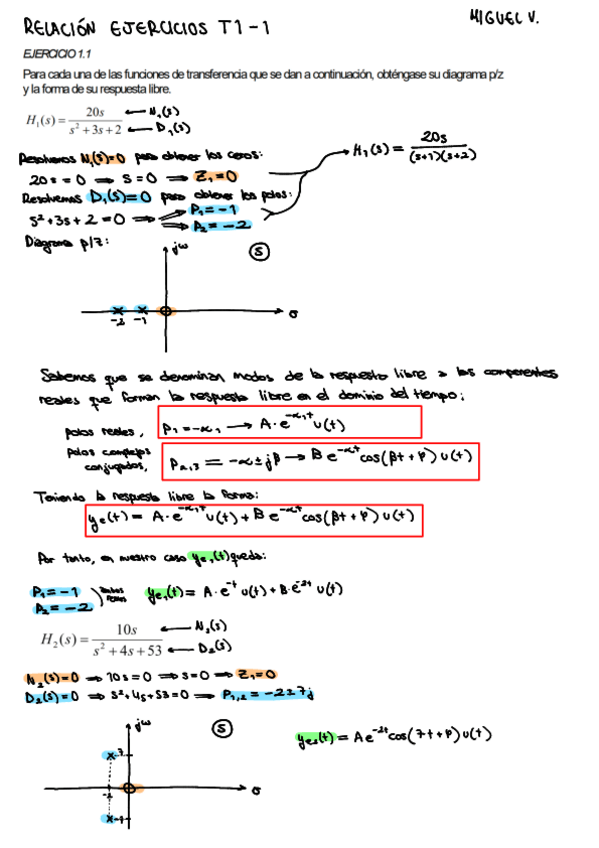 RELACIÓN EJERCICIOS T1-1
MIGUEL V.
EJERCICIO 1.1
Para cada una de las funciones de transferencia que se dan a continuación, obténgase su diagrama p/z
y la forma de su respuesta libre.
H₁(s) = 20s / (s² + 3s + 2) ← N₁(s) ← D₁(s)
Resolvemos N₁(s)=0 para obtener los ceros:
20s = 0 ⇒ s = 0 ⇒ Z₁ = 0
H₁(s) = 20s / (s+1)(s+2)
Resolvemos D₁(s)=0 para obtener los polos:
s² + 3s + 2 = 0 ⇒ P₁ = -1
⇒ P₂ = -2
Diagrama p/z:
jω
S
-2 -1
σ
Sabemos que se denominan modos de la respuesta libre a las componentes
reales que forman la respuesta libre en el dominio del tiempo:
polos reales, P₁ = -α₁ → A·e^-α₁t u(t)
polos complejos
conjugados, P₂,₃ = -α ± jβ → B e^-αt cos(βt + φ) u(t)
Teniendo la respuesta libre la forma:
yₑ(t) = A·e^-α₁t u(t) + B e^-αt cos(βt + φ) u(t)
Por tanto, en nuestro caso yₑ₁(t) queda:
P₁ = -1
P₂ = -2
yₑ₁(t) = A·e^-t u(t) + B·e^-2t u(t)
H₂(s) = 10s / (s² + 4s + 53) ← N₂(s) ← D₂(s)
N₂(s)=0 ⇒ 10s = 0 ⇒ s=0 ⇒ Z₁=0
D₂(s)=0 ⇒ s² + 4s + 53 = 0 ⇒ P₁,₂ = -2 ± 7j
jω
S
7
-2
σ
-7
yₑ₂(t) = A e^-2t cos(7t + φ) u(t)